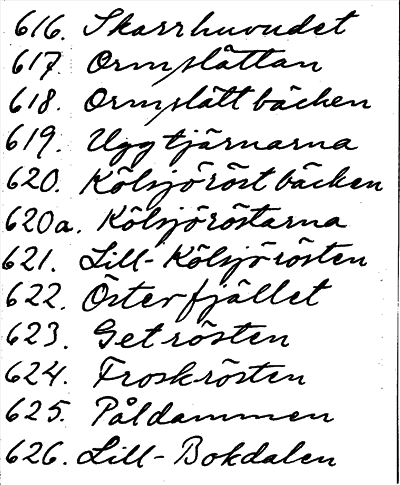 616. Skarrhuvudet
617. Ormslåttan
618. Ormslåttbäcken
619. Uggtjärnarna
620. Kölsjöröstbäcken
620a. Kölsjöröstarna
621. Lill-Kölsjörösten
622. Österfjället
623. Getrösten
624. Froskrösten
625. Påldammen
626. Lill-Bokdalen